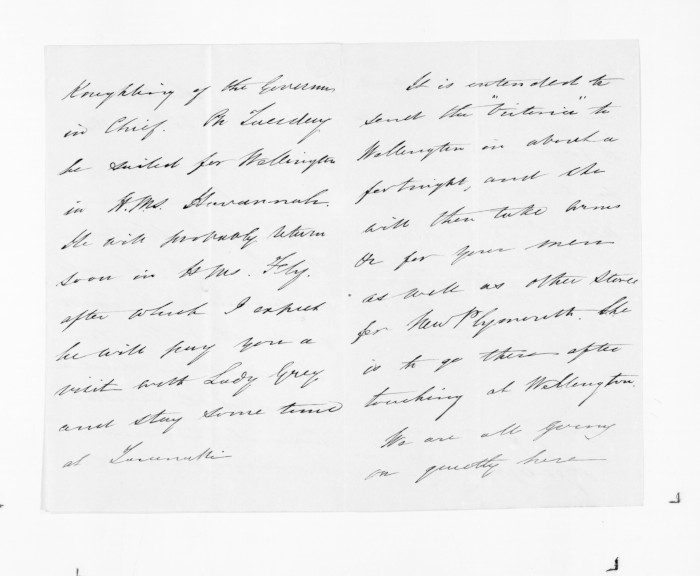 Knighting of the Governor
in Chief. On Tuesday
he sailed for Wellington
in H.Ms. Havannah.
He will probably return
soon in H Ms. Fly.
after which I expect
he will pay you a
visit with Lady Grey
and stay some time
at Taranaki
It is intended to
send the "Victoria" to
Wellington in about a
fortnight, and she
will then take arms
&c for your men
as well as other stores
for New Plymouth. She
is to go there after
touching at Wellington.
We are all going
on quietly here